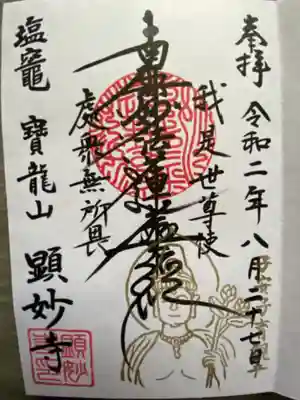 奉拝 令和二年八月二十七日
我是世尊使
南無妙法蓮華経
處衆無所畏
塩竈 寶龍山 顕妙寺